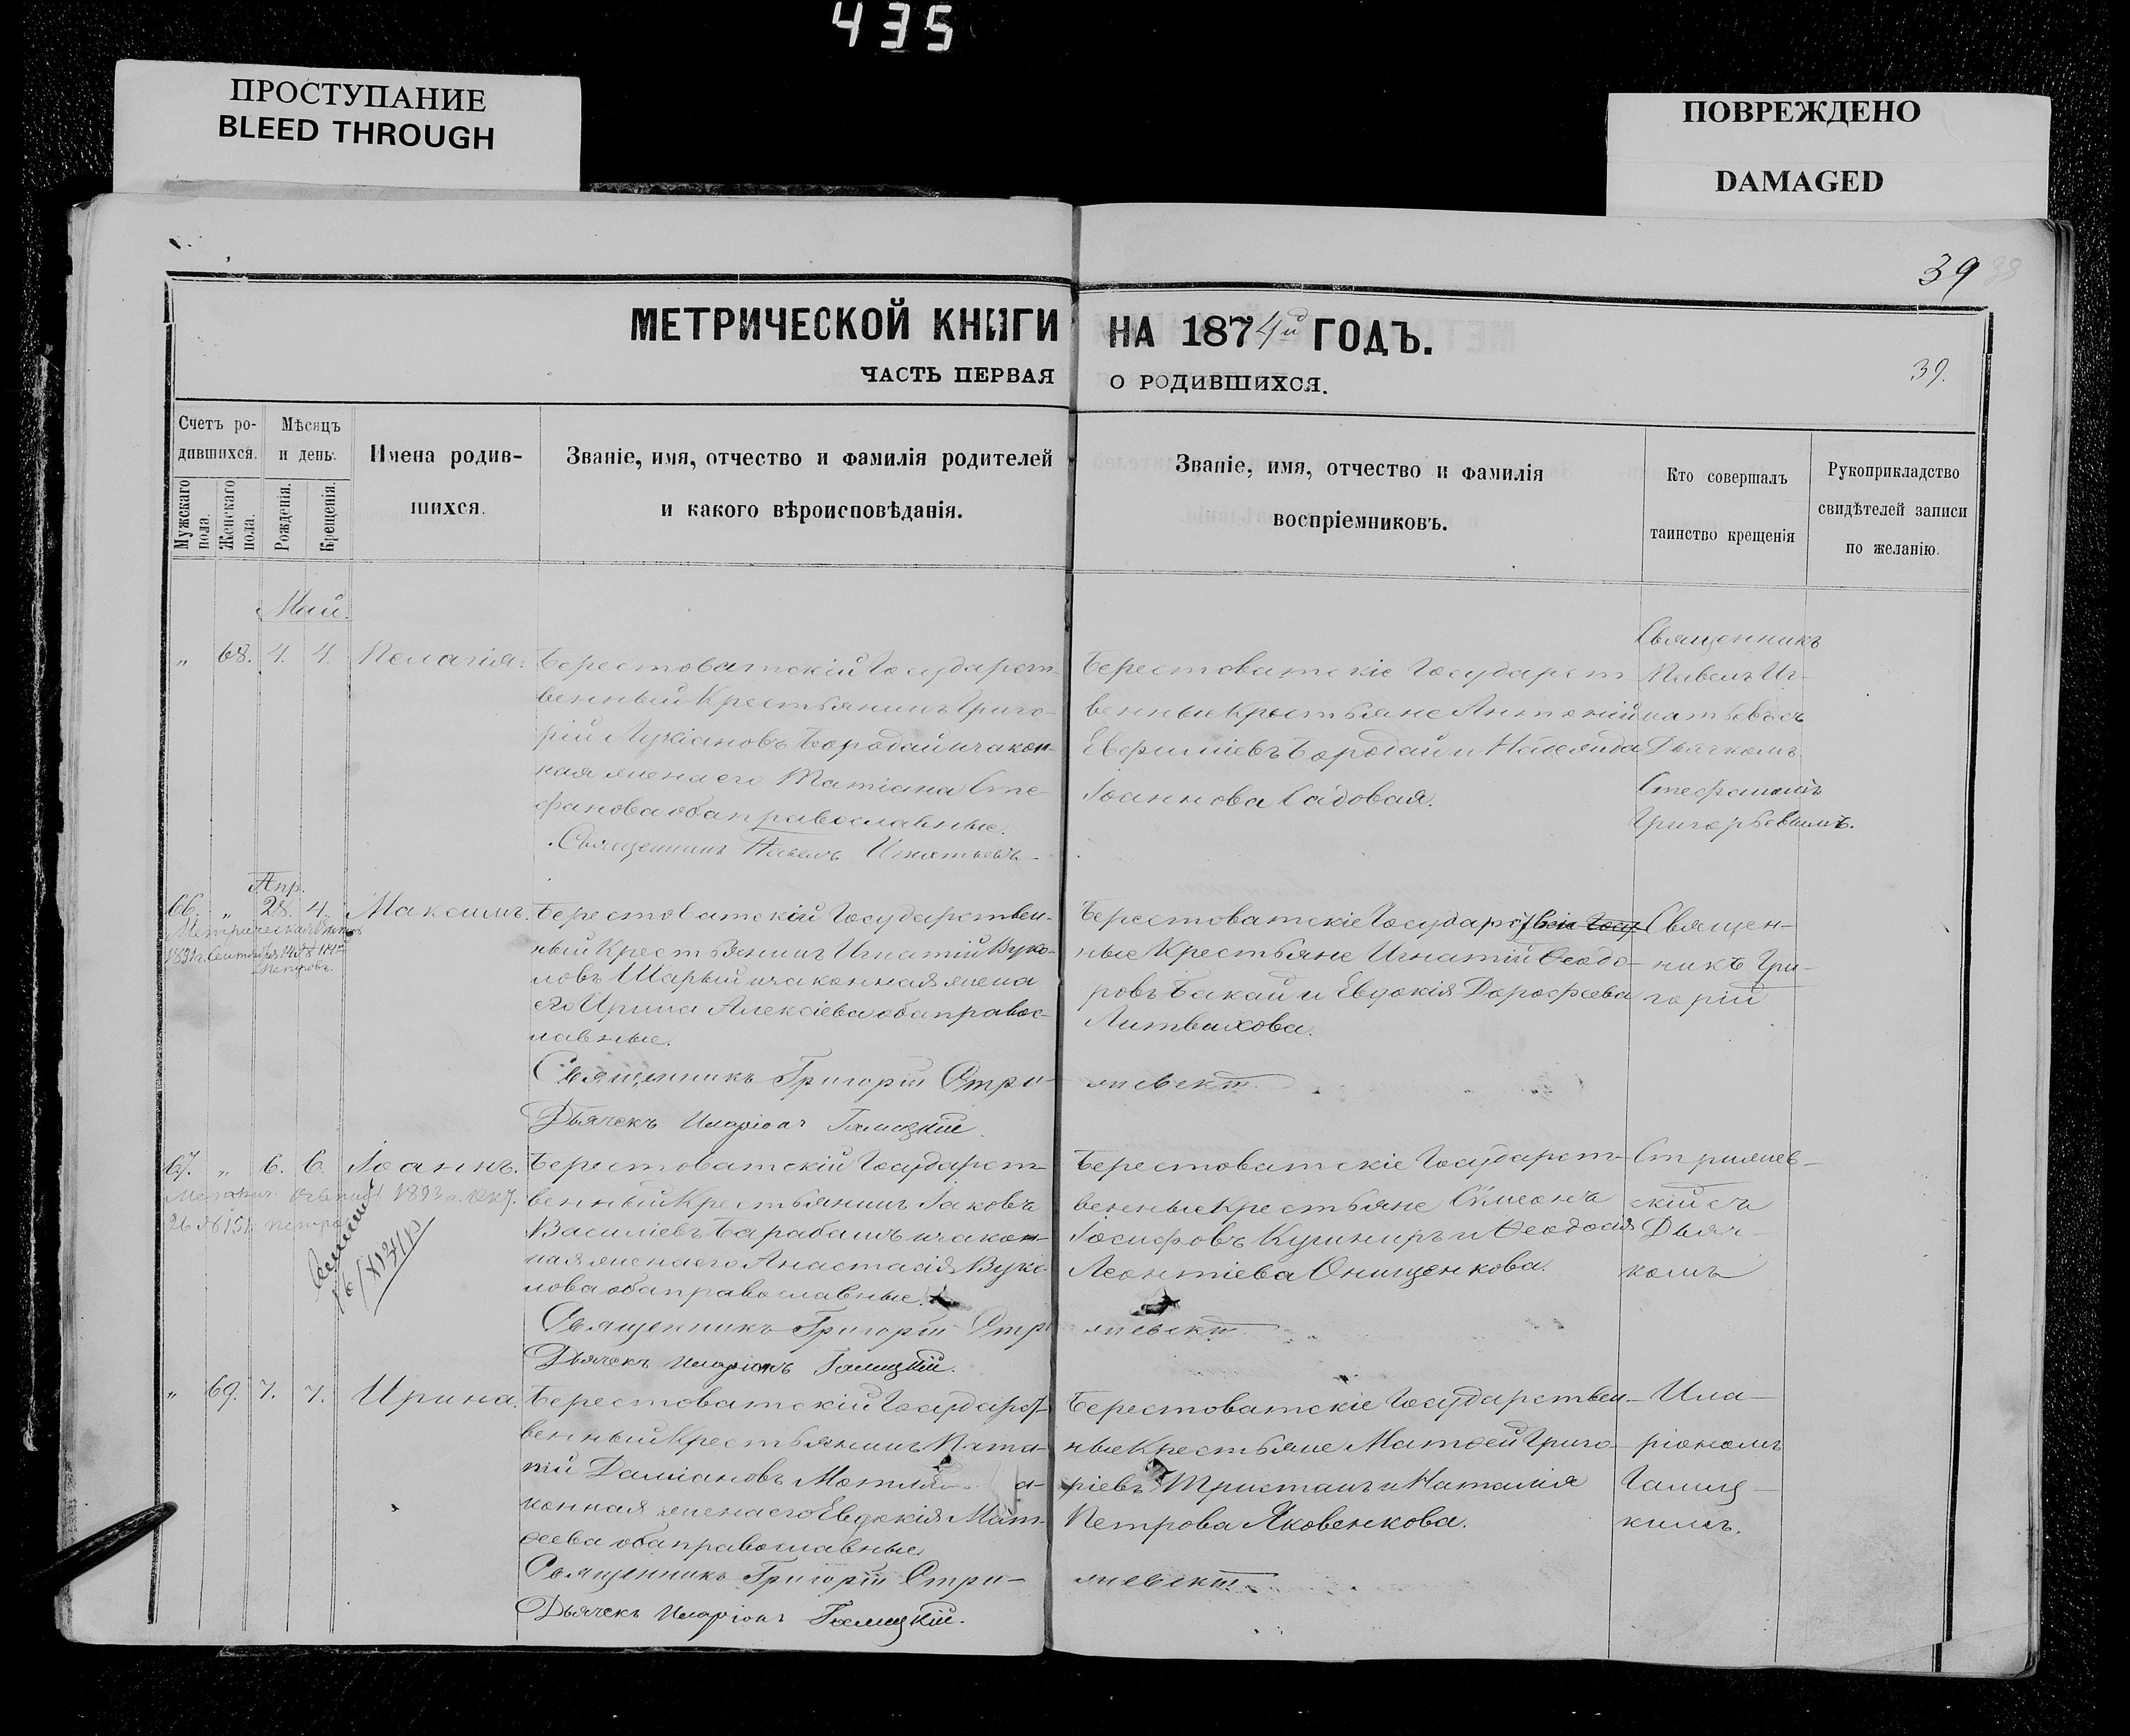 435
ПРОСТУПАНИЕ
BLEED THROUGH
ПОВРЕЖДЕНО
DAMAGED
39
МЕТРИЧЕСКОЙ КНИГИ НА 1874й ГОДЪ.
ЧАСТЬ ПЕРВАЯ О РОДИВШИХСЯ.
39.
Счетъ ро-
дившихся.
Мужскаго пола.
Женскаго пола.
Мѣсяцъ
и день.
Рожденія.
Крещенія.
Имена родив-
шихся.
Званіе, имя, отчество и фамилія родителей
и какого вѣроисповѣданія.
Званіе, имя, отчество и фамилія
воспріемниковъ.
Кто совершалъ
таинство крещенія
Рукоприкладство
свидѣтелей записи
по желанію.
Май.
„ 68. 4. 4. Пелагія.
Берестоватскій Государст-
венный Крестьянинъ Григо-
рій Лукіановъ Бородай и закон-
ная жена его Татіана Сте-
фанова оба православные.
Священникъ Павелъ Игнатьевъ
Берестоватскіе Государст-
венные Крестьяне Антоній
Евфиміевъ Бородай и
Іоаннова Садовая.
Священникъ
Павелъ Иг-
натьевъ съ
Дьячкомъ
Стефаномъ
Григорьевымъ.
Апр.
66. „ 28. 4. Максимъ.
Метрическая
1891 г. Сентября 14
Берестоватскій Государствен-
ный Крестьянинъ Игнатій Вуко-
ловъ Шарый и законная жена
его Ирина Алексіева оба правос-
лавные.
Священникъ Григорій Стри-жевскій
Дьячекъ Иларіонъ Галицкій.
Берестоватскіе Государствен
ные Крестьяне Игнатій Ѳеодо-
ровъ Бакай и Евдокія Дорофеева
Литвихова.
Священ-
никъ Гри-
горій
67. „ 6. 6. Іоаннъ.
26 № 151
Берестоватскій Государст-
венный Крестьянинъ Іаковъ
Василіевъ Барабашъ и закон-
ная жена его Анастасія Вуко-
лова оба православные.
Священникъ Григорій Стри жевскій
Дьячекъ Иларіонъ Галицкій.
Берестоватскіе Государст-
венные Крестьяне Симеонъ
Іосифовъ Кушниръ и Ѳеодосія
Леонтіева Онищенкова.
Стрижев-
скій съ
Дьяч-
комъ
„ 69. 7. 7. Ирина.
Берестоватскій Государст-
венный Крестьянинъ
Даміановъ
конная жена его Евдокія Мат-
ѳеева оба православные.
Священникъ Григорій Стри-жевскій
Дьячекъ Иларіонъ Галицкій.
Берестоватскіе Государствен-
ные Крестьяне Матѳей Григо-
ріевъ Тристанъ и Наталія
Петрова Яковенкова.
Ила-
ріономъ
Галиц-
кимъ.